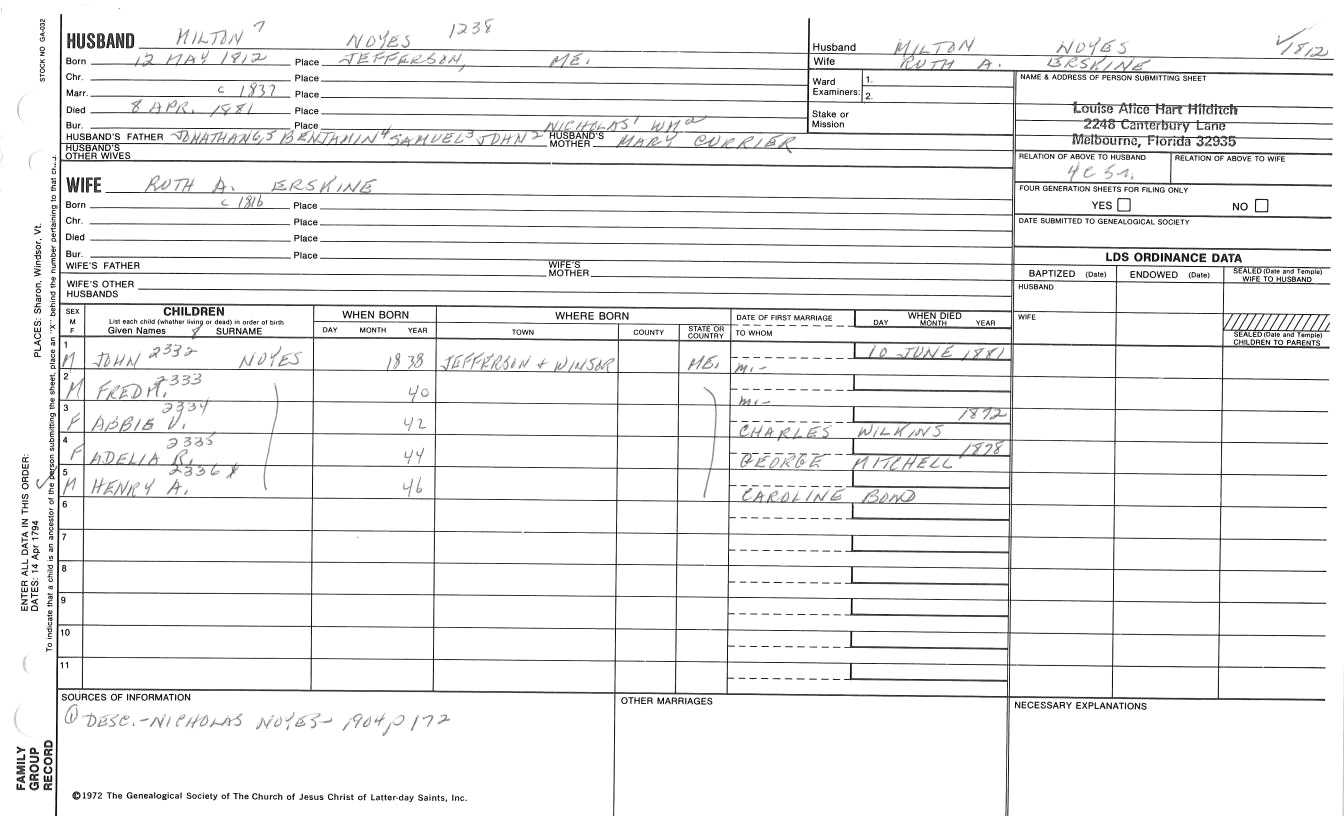 STOCK NO. GA-032
HUSBAND MILTON 7 NOYES 1238
Born 12 MAY 1812 Place JEFFERSON, ME.
Chr. Place
Marr. c 1837 Place
Died 8 APR. 1881 Place
Bur. Place NICHOLAS 1 WM 2
HUSBAND'S FATHER JONATHAN 6, 5 BENJAMIN 4 SAMUEL 3 JOHN 2 HUSBAND'S MOTHER MARY CURRIER
HUSBAND'S OTHER WIVES
WIFE RUTH A. ERSKINE
Born c 1816 Place
Chr. Place
Died Place
Bur. Place
WIFE'S FATHER WIFE'S MOTHER
WIFE'S OTHER HUSBANDS
Husband MILTON NOYES 1812
Wife RUTH A. ERSKINE
Ward Examiners: 1. 2.
Stake or Mission
NAME & ADDRESS OF PERSON SUBMITTING SHEET
Louise Alice Hart Hilditch
2248 Canterbury Lane
Melbourne, Florida 32935
RELATION OF ABOVE TO HUSBAND RELATION OF ABOVE TO WIFE
4C 5r.
FOUR GENERATION SHEETS FOR FILING ONLY
YES NO
DATE SUBMITTED TO GENEALOGICAL SOCIETY
LDS ORDINANCE DATA
BAPTIZED (Date) ENDOWED (Date) SEALED (Date and Temple) WIFE TO HUSBAND
HUSBAND
WIFE
SEALED (Date and Temple) CHILDREN TO PARENTS
SEX M F CHILDREN WHEN BORN WHERE BORN DATE OF FIRST MARRIAGE WHEN DIED
List each child (whether living or dead) in order of birth
Given Names 8 SURNAME DAY MONTH YEAR TOWN COUNTY STATE OR COUNTRY TO WHOM DAY MONTH YEAR
1 M JOHN 2332 NOYES 1838 JEFFERSON + WINSOR ME. m.- 10 JUNE 1881
2 M FRED M. 2333 40 m.-
3 F ABBIE V. 2334 42 CHARLES WILKINS 1872
4 F ADELIA R. 2335 44 GEORGE MITCHELL 1878
5 M HENRY A. 2336 46 CAROLINE BOND
6
7
8
9
10
11
SOURCES OF INFORMATION
① DESC.-NICHOLAS NOYES-1904, p 172
OTHER MARRIAGES
NECESSARY EXPLANATIONS
©1972 The Genealogical Society of The Church of Jesus Christ of Latter-day Saints, Inc.
ENTER ALL DATA IN THIS ORDER:
DATES: 14 Apr 1794 PLACES: Sharon, Windsor, Vt.
To indicate that a child is an ancestor of the person submitting the sheet, place an "X" behind the number pertaining to that
FAMILY
GROUP
RECORD